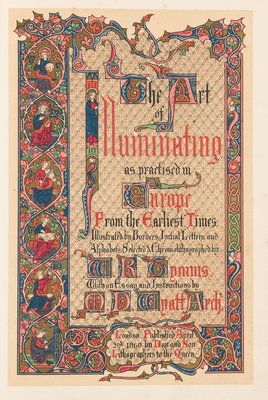 The Art
of
Illuminating
as practised in
Europe
From the Earliest Times.
Illustrated by Borders, Initial Letters, and
Alphabets, Selected & Chromolithographed by
W. R. Tymms.
With an Essay and Instructions by
M. D. Wyatt, Arch.
London. Published April
2nd. 1860, by Day and Son
Lithographers to the Queen.